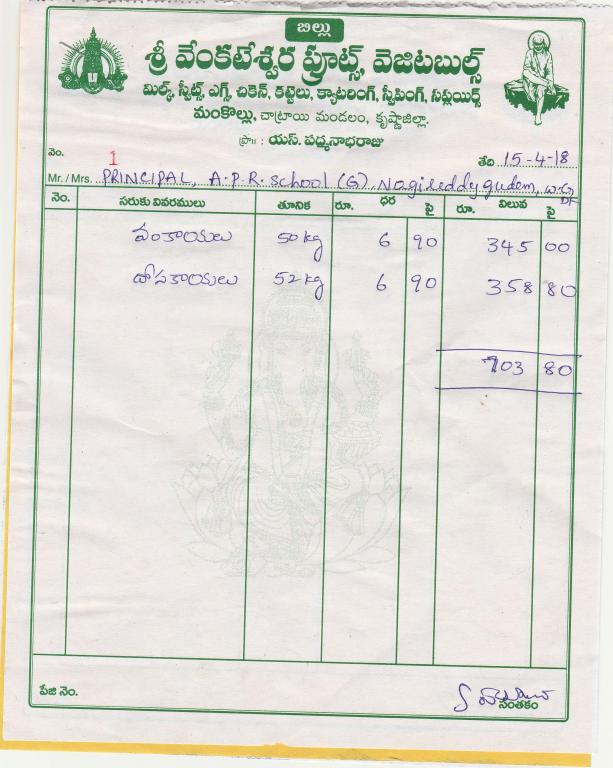 బిల్లు
శ్రీ వేంకటేశ్వర ఫ్రూట్స్, వెజిటబుల్స్
మిల్క్, స్వీట్స్, ఎగ్స్, చికెన్, కట్టెలు, క్యాటరింగ్, స్వీపింగ్, సప్లయిర్స్
మంకొల్లు, చాట్రాయి మండలం, కృష్ణాజిల్లా.
ప్రొ॥ : యస్. పద్మనాభరాజు
నెం. 1 తేది 15-4-18
Mr. / Mrs. PRINCIPAL, A.P.R. School (G), Nagireddygudem, W.G DT
నెం. సరుకు వివరములు తూనిక రూ. ధర పై రూ. విలువ పై
వంకాయలు 50 kg 6 90 345 00
దోసకాయలు 52 kg 6 90 358 80
703 80
పేజి నెం. సంతకం